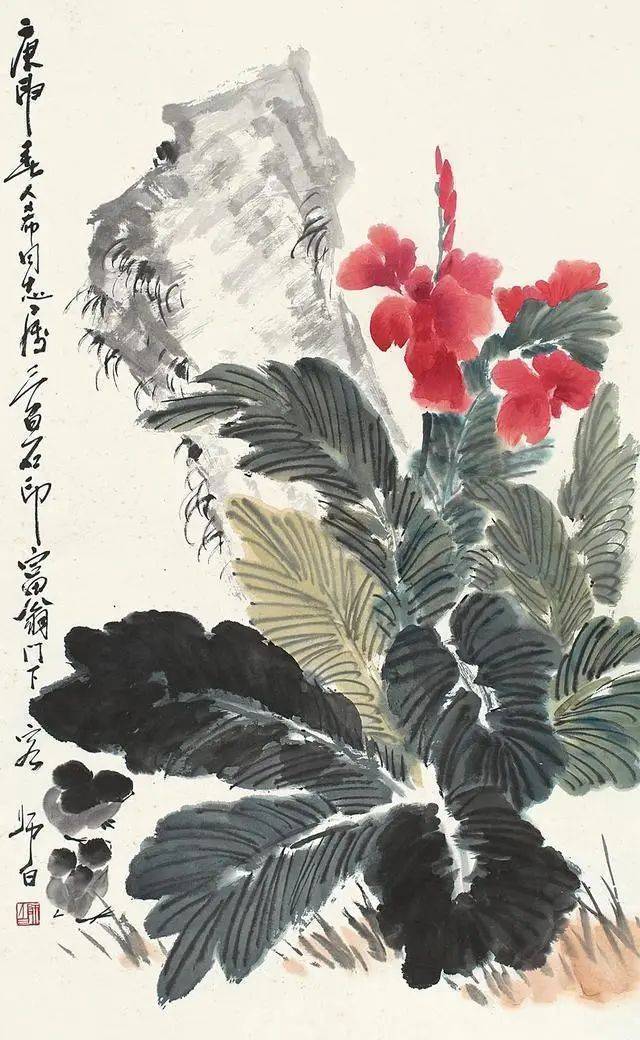 庚申春人希同志属三百石印富翁门下客师白